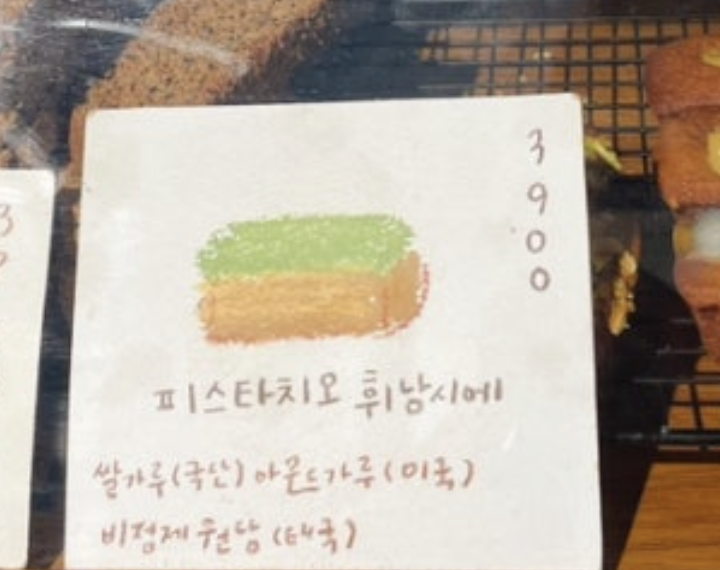 3
9
0
0
피스타치오 휘낭시에
쌀가루(국산) 아몬드가루(미국)
비정제 원당 (태국)